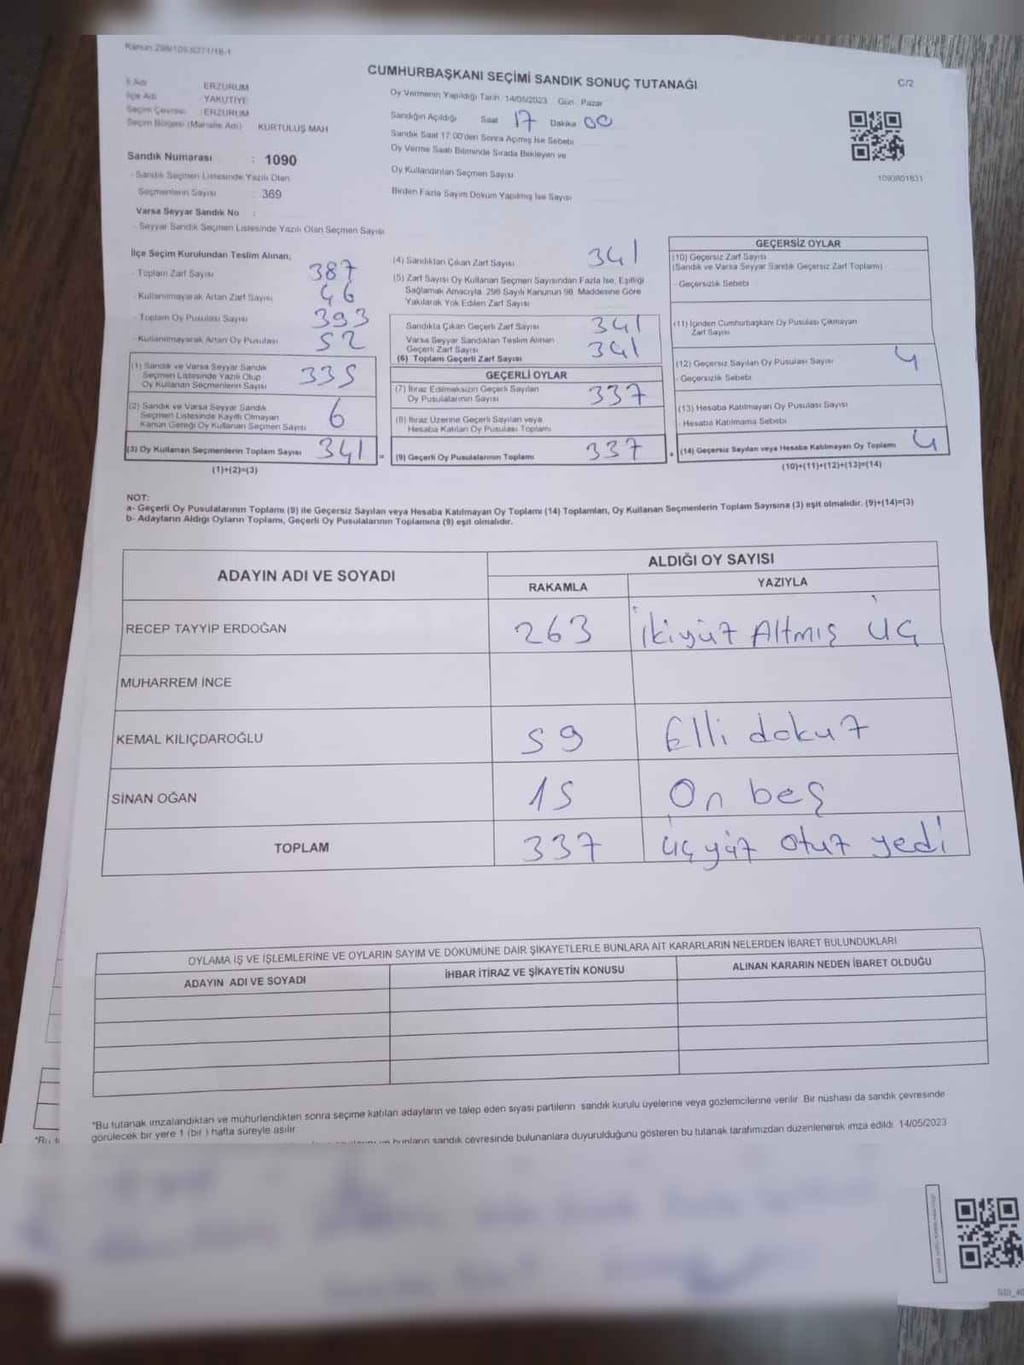 Kanun 298/105-6271/16-1
CUMHURBAŞKANI SEÇİMİ SANDIK SONUÇ TUTANAĞI
C/2
İl Adı : ERZURUM
İlçe Adı : YAKUTİYE
Seçim Çevresi : ERZURUM
Seçim Bölgesi (Mahalle Adı) : KURTULUŞ MAH
Sandık Numarası : 1090
- Sandık Seçmen Listesinde Yazılı Olan
Seçmenlerin Sayısı : 369
Varsa Seyyar Sandık No :
- Seyyar Sandık Seçmen Listesinde Yazılı Olan Seçmen Sayısı
Oy Vermenin Yapıldığı Tarih : 14/05/2023 Gün : Pazar
Sandığın Açıldığı Saat 17 Dakika 00
Sandık Saat 17:00'den Sonra Açmış İse Sebebi
Oy Verme Saati Bitiminde Sırada Bekleyen ve
Oy Kullandırılan Seçmen Sayısı
Birden Fazla Sayım Döküm Yapılmış İse Sayısı
1093801831
İlçe Seçim Kurulundan Teslim Alınan;
- Toplam Zarf Sayısı 387
- Kullanılmayarak Artan Zarf Sayısı 46
- Toplam Oy Pusulası Sayısı 393
- Kullanılmayarak Artan Oy Pusulası 52
(1) Sandık ve Varsa Seyyar Sandık
Seçmen Listesinde Yazılı Olup
Oy Kullanan Seçmenlerin Sayısı 335
(2) Sandık ve Varsa Seyyar Sandık
Seçmen Listesinde Kayıtlı Olmayan
Kanun Gereği Oy Kullanan Seçmen Sayısı 6
(3) Oy Kullanan Seçmenlerin Toplam Sayısı 341 =
(1)+(2)=(3)
(4) Sandıktan Çıkan Zarf Sayısı 341
(5) Zarf Sayısı Oy Kullanan Seçmen Sayısından Fazla İse, Eşitliği
Sağlamak Amacıyla, 298 Sayılı Kanunun 98. Maddesine Göre
Yakılarak Yok Edilen Zarf Sayısı
Sandıkta Çıkan Geçerli Zarf Sayısı 341
Varsa Seyyar Sandıktan Teslim Alınan
Geçerli Zarf Sayısı
(6) Toplam Geçerli Zarf Sayısı 341
GEÇERLİ OYLAR
(7) İtiraz Edilmeksizin Geçerli Sayılan
Oy Pusulalarının Sayısı 337
(8) İtiraz Üzerine Geçerli Sayılan veya
Hesaba Katılan Oy Pusulası Toplamı
(9) Geçerli Oy Pusulalarının Toplamı 337 +
GEÇERSİZ OYLAR
(10) Geçersiz Zarf Sayısı
(Sandık ve Varsa Seyyar Sandık Geçersiz Zarf Toplamı)
- Geçersizlik Sebebi
(11) İçinden Cumhurbaşkanı Oy Pusulası Çıkmayan
Zarf Sayısı
(12) Geçersiz Sayılan Oy Pusulası Sayısı 4
- Geçersizlik Sebebi
(13) Hesaba Katılmayan Oy Pusulası Sayısı
- Hesaba Katılmama Sebebi
(14) Geçersiz Sayılan veya Hesaba Katılmayan Oy Toplamı 4
(10)+(11)+(12)+(13)=(14)
NOT:
a- Geçerli Oy Pusulalarının Toplamı (9) ile Geçersiz Sayılan veya Hesaba Katılmayan Oy Toplamı (14) Toplamları, Oy Kullanan Seçmenlerin Toplam Sayısına (3) eşit olmalıdır. (9)+(14)=(3)
b- Adayların Aldığı Oyların Toplamı, Geçerli Oy Pusulalarının Toplamına (9) eşit olmalıdır.
ADAYIN ADI VE SOYADI ALDIĞI OY SAYISI
RAKAMLA YAZIYLA
RECEP TAYYİP ERDOĞAN 263 ikiyüz Altmış üç
MUHARREM İNCE
KEMAL KILIÇDAROĞLU 59 Elli dokuz
SİNAN OĞAN 15 On beş
TOPLAM 337 üçyüz otuz yedi
OYLAMA İŞ VE İŞLEMLERİNE VE OYLARIN SAYIM VE DÖKÜMÜNE DAİR ŞİKAYETLERLE BUNLARA AİT KARARLARIN NELERDEN İBARET BULUNDUKLARI
ADAYIN ADI VE SOYADI İHBAR İTİRAZ VE ŞİKAYETİN KONUSU ALINAN KARARIN NEDEN İBARET OLDUĞU
"Bu tutanak imzalandıktan ve mühürlendikten sonra seçime katılan adayların ve talep eden siyasi partilerin sandık kurulu üyelerine veya gözlemcilerine verilir. Bir nüshası da sandık çevresinde
görülecek bir yere 1 (bir ) hafta süreyle asılır.
bunların sandık çevresinde bulunanlara duyurulduğunu gösteren bu tutanak tarafımızdan düzenlenerek imza edildi. 14/05/2023